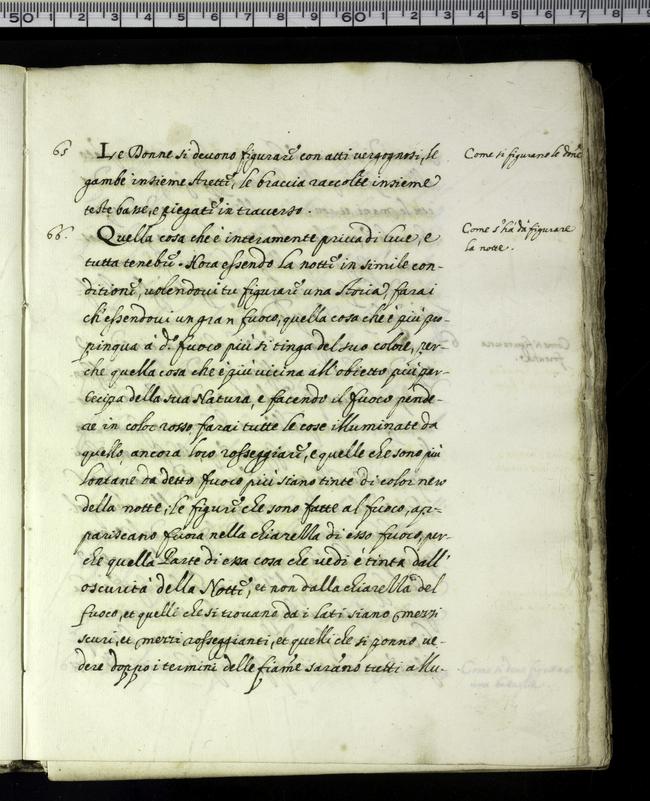 65 Le Donne si devono figurare con atti vergognosi, le
Come si figurano le done
gambe insieme strette, le braccia raccolte insieme
teste basse, e piegate in traverso.
66. Quella cosa che è interamente priva di luce, e
Come s'hà da figurare
la notte.
tutta tenebre. Hora essendo la notte in simile con-
ditione, volendovi tu figurare una storia, farai
ch'essendovi un gran fuoco, quella cosa che è più pro-
pinqua a d.º fuoco più si tinga del suo colore, per-
che quella cosa che è più vicina all'obietto più par-
tecipa della sua Natura, e facendo il fuoco pende-
re in color rosso farai tutte le cose illuminate da
quello ancora loro rosseggiare, e quelle che sono più
lontane da detto fuoco più siano tinte di color nero
della notte, le figure che sono fatte al fuoco, ap-
pariscano fuora nella chiarezza di esso fuoco, per-
che quella Parte di essa cosa che vedi è tinta dall'
oscurità della Notte, et non dalla chiarezza del
fuoco, et quelli che si trovano da i lati siano mezzi
scuri, et mezzi rosseggianti, et quelli che si ponno ve-
dere doppo i termini delle fiame sarano tutti allu-